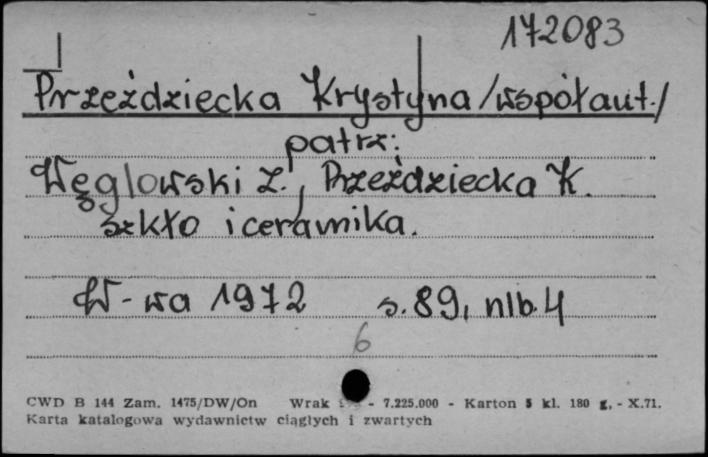 172083
Przeździecka Krystyna /współaut./
patrz:
Węglowski Z., Przeździecka K.
Szkło i ceramika.
W-wa 1972 s. 89, nlb. 4
6
CWD B 144 Zam. 1475/DW/On Wrak - 7.225.000 - Karton 5 kl. 180 g, - X.71.
Karta katalogowa wydawnictw ciągłych i zwartych